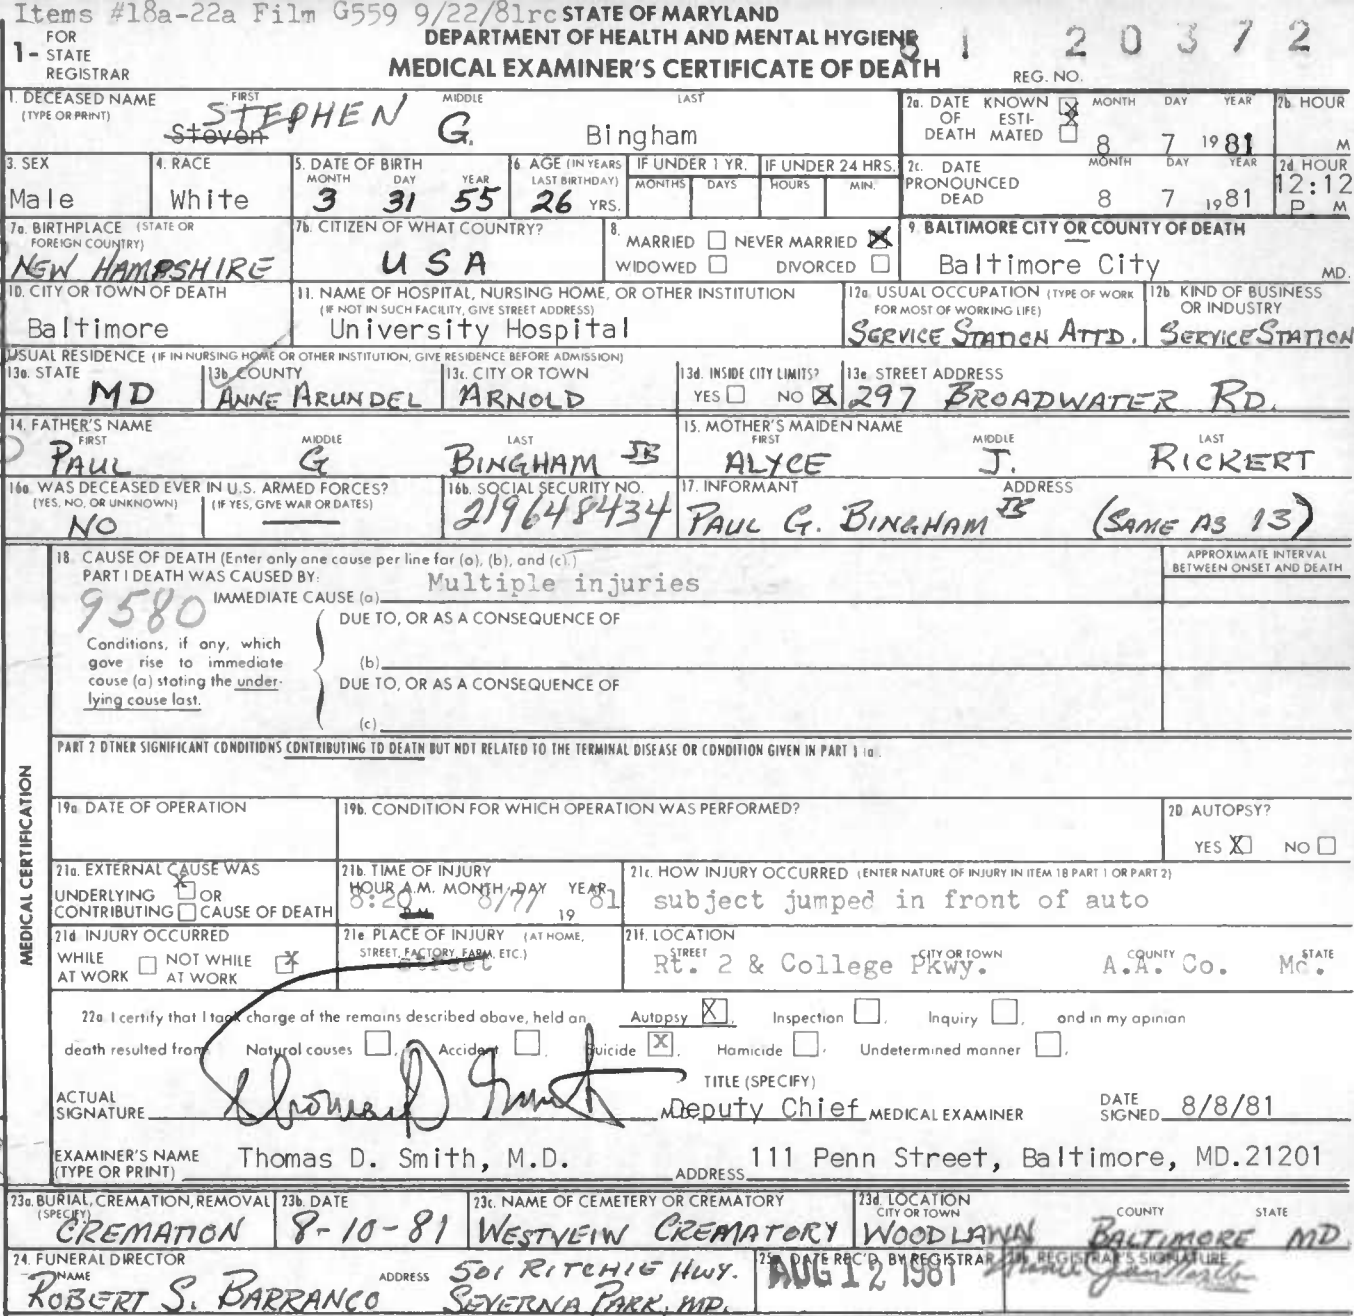 Items #18a-22a Film G559 9/22/81rc STATE OF MARYLAND
1- FOR STATE REGISTRAR
DEPARTMENT OF HEALTH AND MENTAL HYGIENE
MEDICAL EXAMINER'S CERTIFICATE OF DEATH
81 20372
REG. NO.
1. DECEASED NAME (TYPE OR PRINT) FIRST MIDDLE LAST
Steven STEPHEN G. Bingham
2a. DATE OF DEATH KNOWN ☒ ESTIMATED ☐ MONTH DAY YEAR 8 7 1981
2b. HOUR M
3. SEX Male
4. RACE White
5. DATE OF BIRTH MONTH DAY YEAR 3 31 55
6. AGE (IN YEARS LAST BIRTHDAY) 26 YRS.
IF UNDER 1 YR. MONTHS DAYS
IF UNDER 24 HRS. HOURS MIN.
2c. DATE PRONOUNCED DEAD MONTH DAY YEAR 8 7 1981
2d. HOUR 12:12 P M
7a. BIRTHPLACE (STATE OR FOREIGN COUNTRY) NEW HAMPSHIRE
7b. CITIZEN OF WHAT COUNTRY? USA
8. MARRIED ☐ NEVER MARRIED ☒
WIDOWED ☐ DIVORCED ☐
9. BALTIMORE CITY OR COUNTY OF DEATH
Baltimore City MD.
10. CITY OR TOWN OF DEATH Baltimore
11. NAME OF HOSPITAL, NURSING HOME, OR OTHER INSTITUTION
(IF NOT IN SUCH FACILITY, GIVE STREET ADDRESS)
University Hospital
12a. USUAL OCCUPATION (TYPE OF WORK FOR MOST OF WORKING LIFE)
SERVICE STATION ATTD.
12b. KIND OF BUSINESS OR INDUSTRY
SERVICE STATION
USUAL RESIDENCE (IF IN NURSING HOME OR OTHER INSTITUTION, GIVE RESIDENCE BEFORE ADMISSION)
13a. STATE MD
13b. COUNTY ANNE ARUNDEL
13c. CITY OR TOWN ARNOLD
13d. INSIDE CITY LIMITS? YES ☐ NO ☒
13e. STREET ADDRESS 297 BROADWATER RD.
14. FATHER'S NAME FIRST MIDDLE LAST
PAUL G BINGHAM JR
15. MOTHER'S MAIDEN NAME FIRST MIDDLE LAST
ALYCE J. RICKERT
16a. WAS DECEASED EVER IN U.S. ARMED FORCES?
(YES, NO, OR UNKNOWN) (IF YES, GIVE WAR OR DATES)
NO
16b. SOCIAL SECURITY NO. 219648434
17. INFORMANT ADDRESS
PAUL G. BINGHAM JR (SAME AS 13)
MEDICAL CERTIFICATION
18. CAUSE OF DEATH (Enter only one cause per line for (a), (b), and (c).)
PART I DEATH WAS CAUSED BY:
IMMEDIATE CAUSE (a) Multiple injuries
APPROXIMATE INTERVAL BETWEEN ONSET AND DEATH
9580
Conditions, if any, which gave rise to immediate cause (a) stating the underlying cause last.
DUE TO, OR AS A CONSEQUENCE OF
(b)
DUE TO, OR AS A CONSEQUENCE OF
(c)
PART 2 OTHER SIGNIFICANT CONDITIONS CONTRIBUTING TO DEATH BUT NOT RELATED TO THE TERMINAL DISEASE OR CONDITION GIVEN IN PART 1 (a).
19a. DATE OF OPERATION
19b. CONDITION FOR WHICH OPERATION WAS PERFORMED?
20 AUTOPSY?
YES ☒ NO ☐
21a. EXTERNAL CAUSE WAS
UNDERLYING ☒ OR
CONTRIBUTING ☐ CAUSE OF DEATH
21b. TIME OF INJURY
HOUR A.M. MONTH DAY YEAR
8:20 P.M. 8/7/ 19 81
21c. HOW INJURY OCCURRED (ENTER NATURE OF INJURY IN ITEM 18 PART 1 OR PART 2)
subject jumped in front of auto
21d. INJURY OCCURRED
WHILE AT WORK ☐ NOT WHILE AT WORK ☒
21e. PLACE OF INJURY (AT HOME, STREET, FACTORY, FARM, ETC.)
street
21f. LOCATION
STREET CITY OR TOWN COUNTY STATE
Rt. 2 & College Pkwy. A.A. Co. Md.
22a. I certify that I took charge of the remains described above, held an Autopsy ☒, Inspection ☐, Inquiry ☐, and in my opinion
death resulted from Natural causes ☐, Accident ☐, Suicide ☒, Homicide ☐, Undetermined manner ☐.
ACTUAL SIGNATURE Thomas D. Smith
TITLE (SPECIFY)
M.D. Deputy Chief MEDICAL EXAMINER
DATE SIGNED 8/8/81
EXAMINER'S NAME (TYPE OR PRINT) Thomas D. Smith, M.D.
ADDRESS 111 Penn Street, Baltimore, MD.21201
23a. BURIAL, CREMATION, REMOVAL (SPECIFY) CREMATION
23b. DATE 8-10-81
23c. NAME OF CEMETERY OR CREMATORY
WESTVEIW CREMATORY
23d. LOCATION CITY OR TOWN COUNTY STATE
WOODLAWN BALTIMORE MD
24. FUNERAL DIRECTOR
NAME ROBERT S. BARRANCO
ADDRESS 501 RITCHIE HWY.
SEVERNA PARK, MD.
25a. DATE REC'D. BY REGISTRAR
AUG 12 1981
25b. REGISTRAR'S SIGNATURE